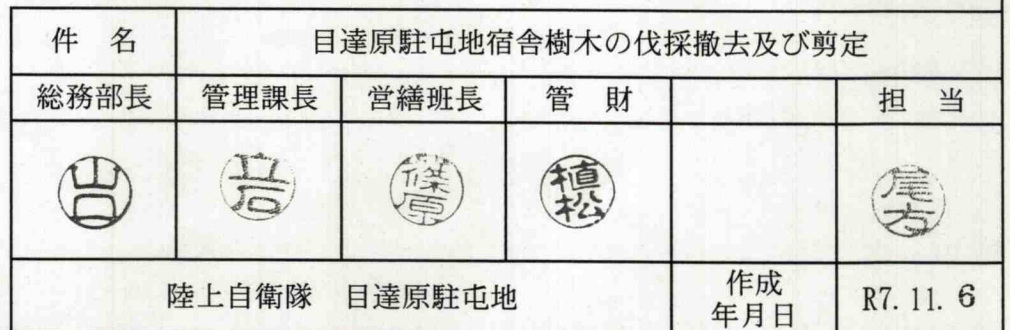 件 名 目達原駐屯地宿舎樹木の伐採撤去及び剪定
総務部長 管理課長 営繕班長 管 財 担 当
山口 立石 篠原 植松 尾方
陸上自衛隊 目達原駐屯地 作成年月日 R7.11.6